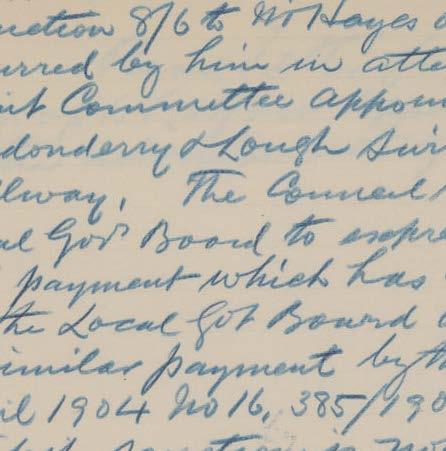 nction 8/6 to Mr Hayes
urred by him in atte
int Committee appoin
donderry & Lough Swi
lway. The Council
al Govt Board to expre
payment which has
the Local Govt Board
imilar payment by th
il 1904 No 16, 385/190
sanction is no